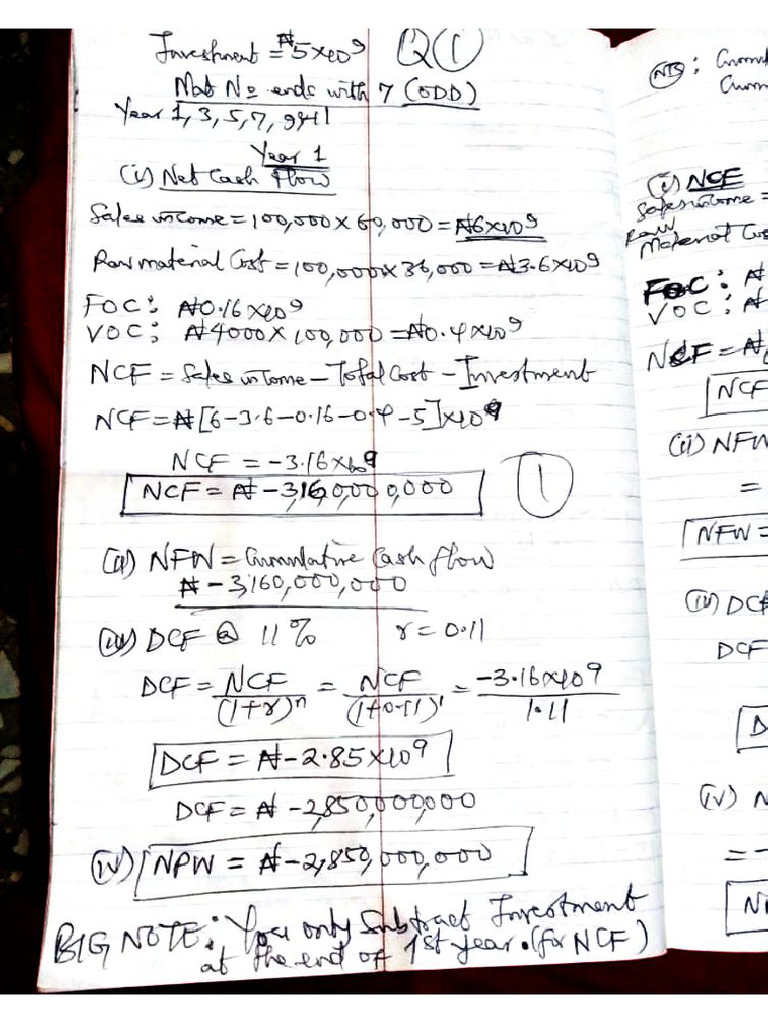 Investment = ₦5×10⁹ Q(1)
Mat No ends with 7 (ODD)
Year 1, 3, 5, 7, 9 & 11
Year 1
(i) Net Cash Flow
Sales income = 100,000 × 60,000 = ₦6×10⁹
Raw material Cost = 100,000 × 36,000 = ₦3.6×10⁹
FOC: ₦0.16×10⁹
VOC: ₦4000 × 100,000 = ₦0.4×10⁹
NCF = Sales income – Total Cost – Investment
NCF = ₦[6–3.6–0.16–0.4–5]×10⁹
NCF = -3.16×10⁹
NCF = ₦ -3,160,000,000 (1)
(ii) NFW = Cumulative Cash flow
₦ -3,160,000,000
(iii) DCF @ 11% r = 0.11
DCF = NCF/(1+r)ⁿ = NCF/(1+0.11)¹ = -3.16×10⁹/1.11
DCF = ₦-2.85×10⁹
DCF = ₦ -2,850,000,000
(iv) NPW = ₦-2,850,000,000
BIG NOTE: You only Subtract Investment
at the end of 1st year. (for NCF)
NTS:
(i) NCF
Sales income =
Raw
Material Cos
FOC: ₦
VOC: ₦
NCF = ₦
NCF
(ii) NFW
=
NFW =
(iii) DCF
DCF
D
(iv) N
= -
N